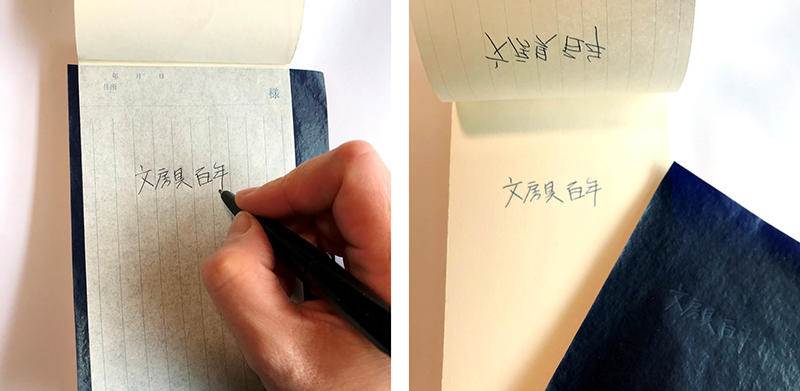 年 月 日
様
文房具百年
文房具百年
文房具百年
文房具百年